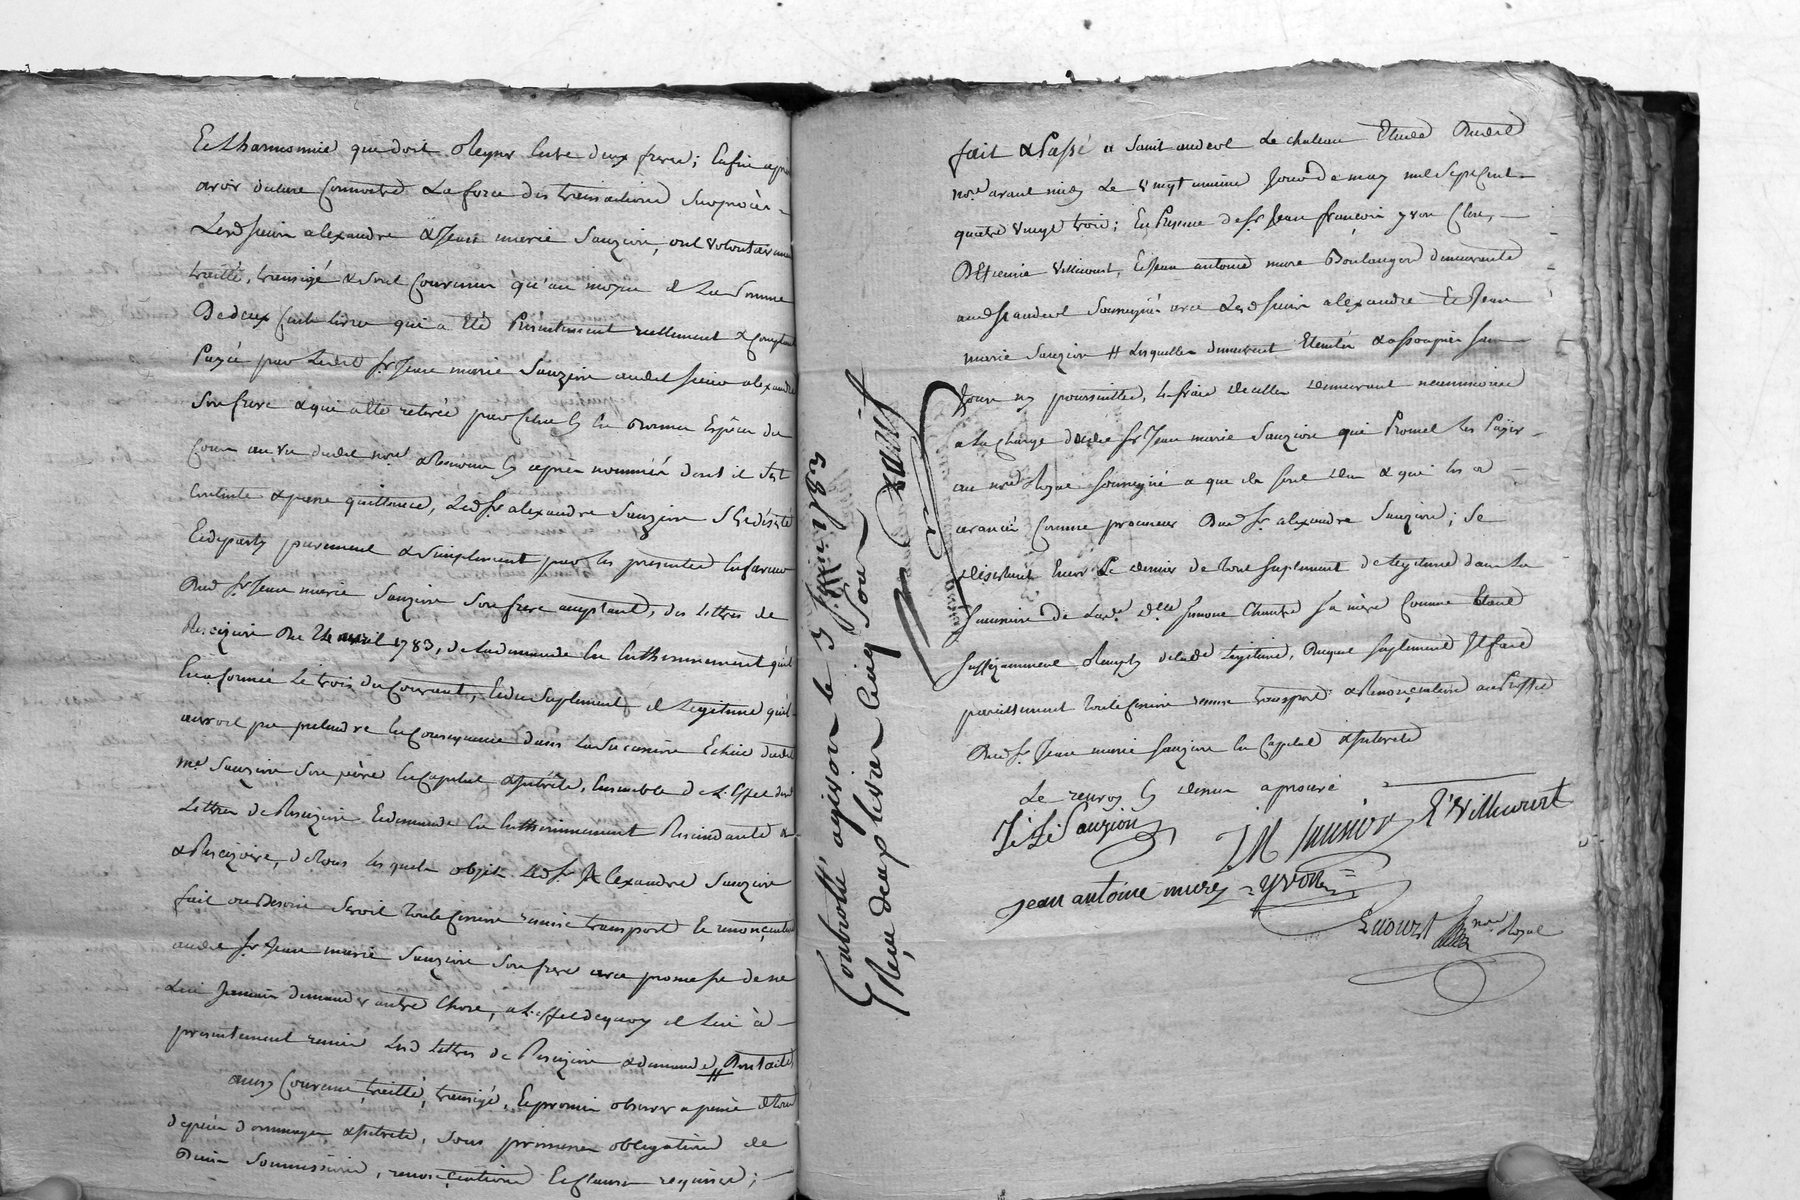 Et L'harmonnie que doit Regner Entre deux freres; Enfin après
avoir declaré Connoitre La force des transactions Susprocès
Lesd sieurs alexandre & Jean marie Sauzion, ont volontairement
traitté, transigé & sont Convenus qu'au moyen de La Somme
De deux Cent livres qui a Eté Présentement réellement & Comptant
Payée par Ledit Sr Jean marie Sauzion audit sieur alexandre
Son frere & qui a été retirée par Celui cy En bonnes Espèces du
Cours au vu dudit nore & temoins cy après nommés dont il Est
Contente & passe quittance, Led Sr alexandre Sauzion S'Est désisté
Et departy purement & simplement par les presentes En faveur
Dud Sr Jean marie Sauzion Son frere acceptant, des Lettres de
Rescizion Du 24 avril 1783, de La demande En Entherinnement qu'il
En a formée Le trois du Courant, Et du Suplement de Legitime qu'il
auroit pu pretendre En Consequence dans La Succession Echue dudit
Me Sauzion Son père En Capital & Interets, Ensemble de L'Effet desd
Lettres de Rescizion Et demande En Entherinnement Rescindante &
& Rescizoire, de tous lesquels objets Led Sr Alexandre Sauzion
fait au Besoin Seroit toute Cession remise transport Et renonciation
audit Sr Jean marie Sauzion Son frere avec promesse de ne
Lui Jamais demander autre Chose, a L'effet de quoy il Lui à
presentement remis Lesd Lettres de Rescizion & demande, # Dont acte
ainsy Convenu, traitté, transigé, Et promis observer a peine de tous
depens dommages & Interets, Sous pareilles obligations de
Biens Soumissions, renonciations Et Clauses requises;
Controllé a givors le 3 Juin 1783
Reçu deux livres Cinq Sous
fait & Passé a Saint andeol Le chateau Etude Dudit
nore avant midy Le vingt unième Jour De may mil Sept Cent
quatre vingt trois; En Presence de Sr Jean françois yvon Clerc,
Et Jean antoine mure Boulanger demeurants
aud St andeol Soussignés avec Lesd sieurs alexandre Et Jean
marie Sauzion # Lesquelles demeurent Eteintes & assoupies sans
pouvoir etre poursuivies, les frais d'icelles demeurant neanmoins
a La Charge dudit Sr Jean marie Sauzion qui Promet Les Payer
au nore Royal soussigné a qui ils sont dus & qui les a
avancés Comme procureur Dud Sr alexandre Sauzion; Se
desistant Encor Le dernier de tout Suplement de Legitime dans La
Succession de La de Dlle Simone Chantre Sa mère Comme Etant
Suffisamment Rempli de lade Legitime, Duquel Suplement Il fait
pareillement toute Cession remise transport & Renonciation au Proffit
Dud Sr Jean marie Sauzion En Capital & Interets
Le renvoy cy dessus aprouvé
Sauzion
J M Sauzion
E Villecourt
jean antoine mure
yvon
nre Royal